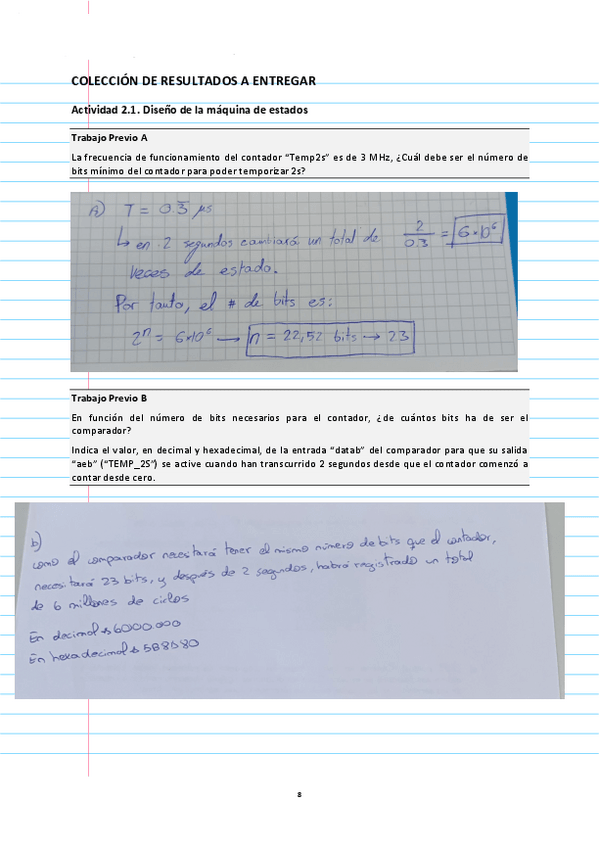 COLECCIÓN DE RESULTADOS A ENTREGAR
Actividad 2.1. Diseño de la máquina de estados
Trabajo Previo A
La frecuencia de funcionamiento del contador “Temp2s” es de 3 MHz, ¿Cuál debe ser el número de
bits mínimo del contador para poder temporizar 2s?
A) T = 0.3 μs
↳ en 2 segundos cambiará un total de 2/0.3 = 6*10^6
veces de estado.
Por tanto, el # de bits es:
2^n = 6*10^6 → n = 22,52 bits → 23
Trabajo Previo B
En función del número de bits necesarios para el contador, ¿de cuántos bits ha de ser el
comparador?
Indica el valor, en decimal y hexadecimal, de la entrada “datab” del comparador para que su salida
“aeb” (“TEMP_2S”) se active cuando han transcurrido 2 segundos desde que el contador comenzó a
contar desde cero.
b)
como el comparador necesitará tener el mismo número de bits que el contador,
necesitará 23 bits, y después de 2 segundos, habrá registrado un total
de 6 millones de ciclos
En decimal → 6000.000
En hexadecimal → 5B8D80
8